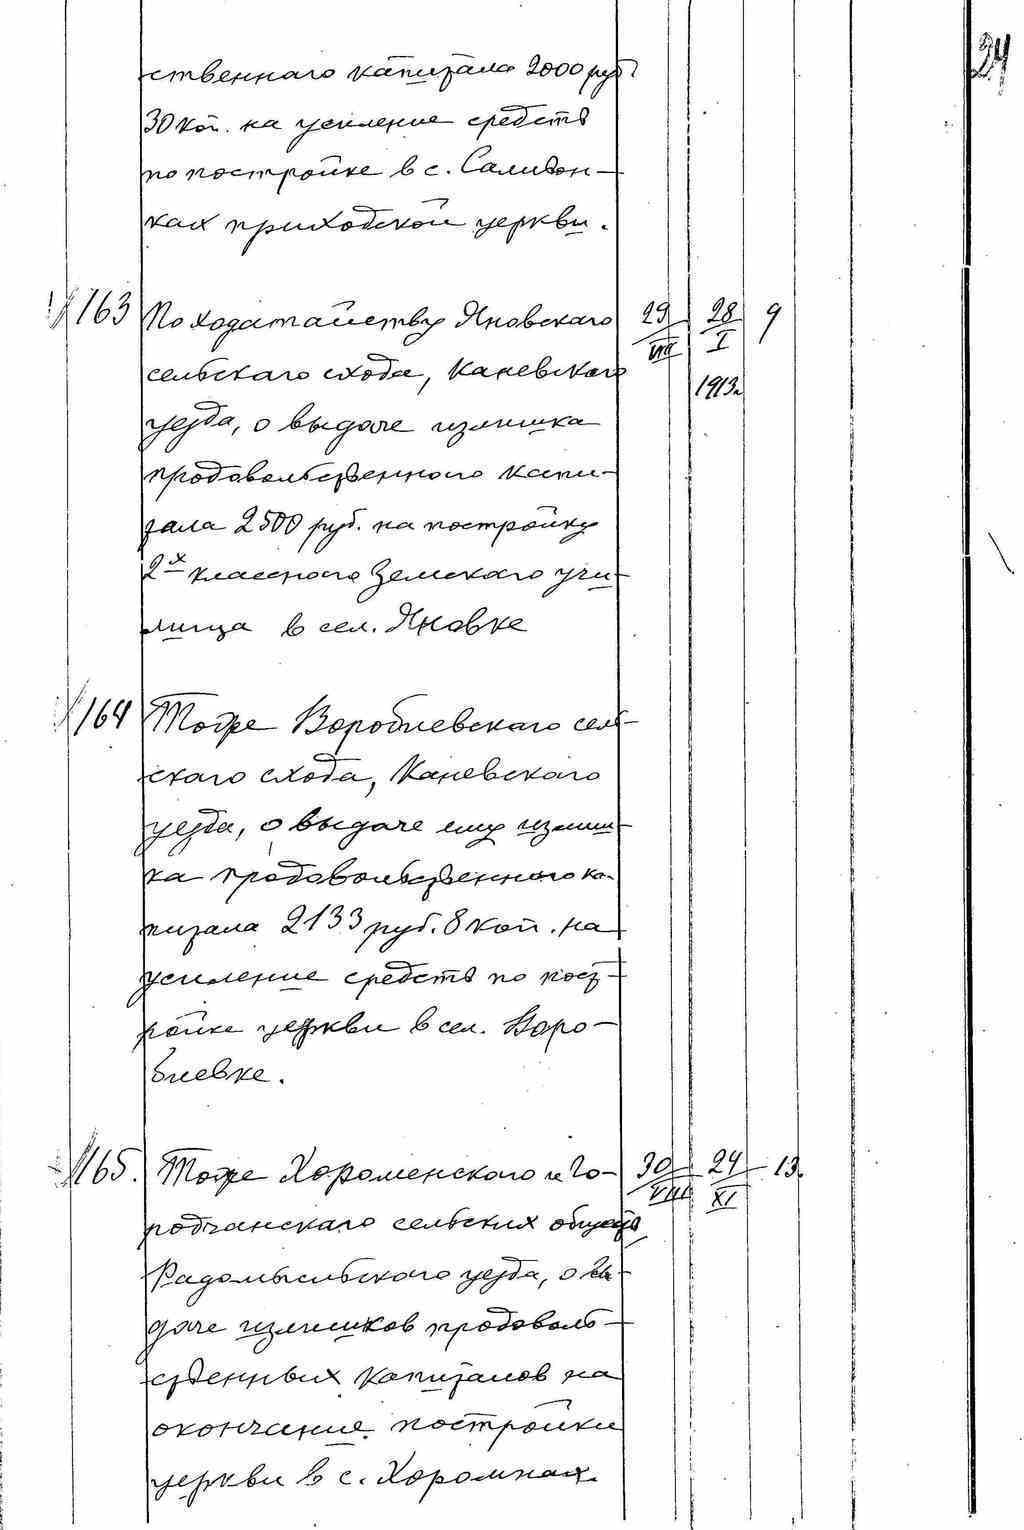 24
ственнаго капитала 2000 руб
30 коп. на усиление средств
по постройке в с. Саливон-
ках приходской церкви.
163 По ходатайству Яновскаго 29/VIII 28/I 9
сельскаго схода, Каневскаго 1913г.
уезда, о выдаче излишка
продовольственнаго капи-
тала 2500 руб. на постройку
2х классного Земскаго учи-
лища в сел. Яновке
164 Тоже Воробиевскаго сель-
скаго схода, Каневскаго
уезда, о выдаче ему излиш-
ка продовольственнаго ка-
питала 2133 руб. 8 коп. на
усиление средств по пост-
ройке церкви в сел. Воро-
биевке.
165. Тоже Хороменскаго и Го- 30/VIII 24/XI 13.
родчанскаго сельских обществ
Радомысльскаго уезда, о вы-
даче излишков продоволь-
ственных капиталов на
окончание постройки
церкви в с. Хоромнах.